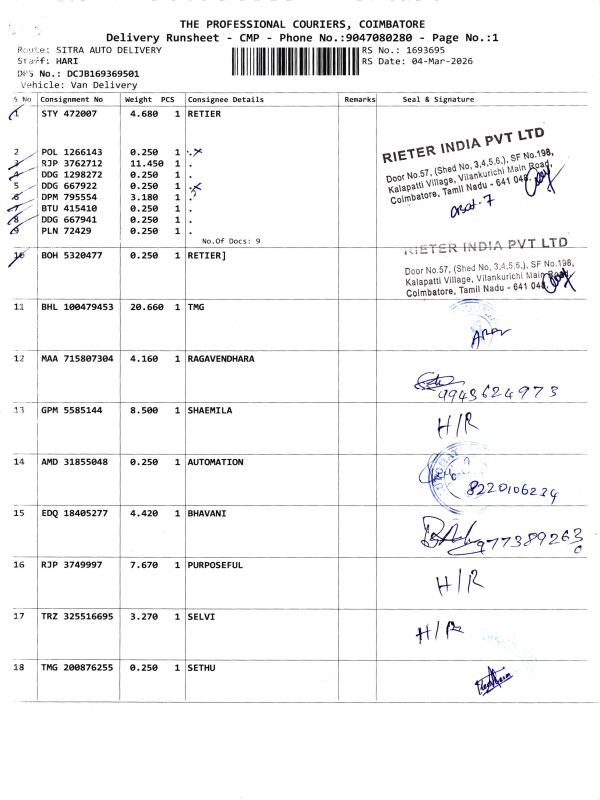 THE PROFESSIONAL COURIERS, COIMBATORE
Delivery Runsheet - CMP - Phone No.:9047080280 - Page No.:1
Route: SITRA AUTO DELIVERY
RS No.: 1693695
Staff: HARI
RS Date: 04-Mar-2026
DRS No.: DCJB169369501
Vehicle: Van Delivery
S No Consignment No Weight PCS Consignee Details Remarks Seal & Signature
1 STY 472007 4.680 1 RETIER
2 POL 1266143 0.250 1 .
3 RJP 3762712 11.450 1 .
4 DDG 1298272 0.250 1 .
5 DDG 667922 0.250 1 .
6 DPM 795554 3.180 1 .
7 BTU 415410 0.250 1 .
8 DDG 667941 0.250 1 .
9 PLN 72429 0.250 1 .
No.Of Docs: 9
RIETER INDIA PVT LTD
Door No.57, (Shed No, 3,4,5,6,), SF No.198,
Kalapatti Village, Vilankurichi Main Road,
Coimbatore, Tamil Nadu - 641 048.
10 BOH 5320477 0.250 1 RETIER]
RIETER INDIA PVT LTD
Door No.57, (Shed No, 3,4,5,6,), SF No.198,
Kalapatti Village, Vilankurichi Main Road,
Coimbatore, Tamil Nadu - 641 048.
11 BHL 100479453 20.660 1 TMG
12 MAA 715807304 4.160 1 RAGAVENDHARA
9943624973
13 GPM 5585144 8.500 1 SHAEMILA
H/R
14 AMD 31855048 0.250 1 AUTOMATION
8220106234
15 EDQ 18405277 4.420 1 BHAVANI
9773892630
16 RJP 3749997 7.670 1 PURPOSEFUL
H/R
17 TRZ 325516695 3.270 1 SELVI
H/R
18 TMG 200876255 0.250 1 SETHU